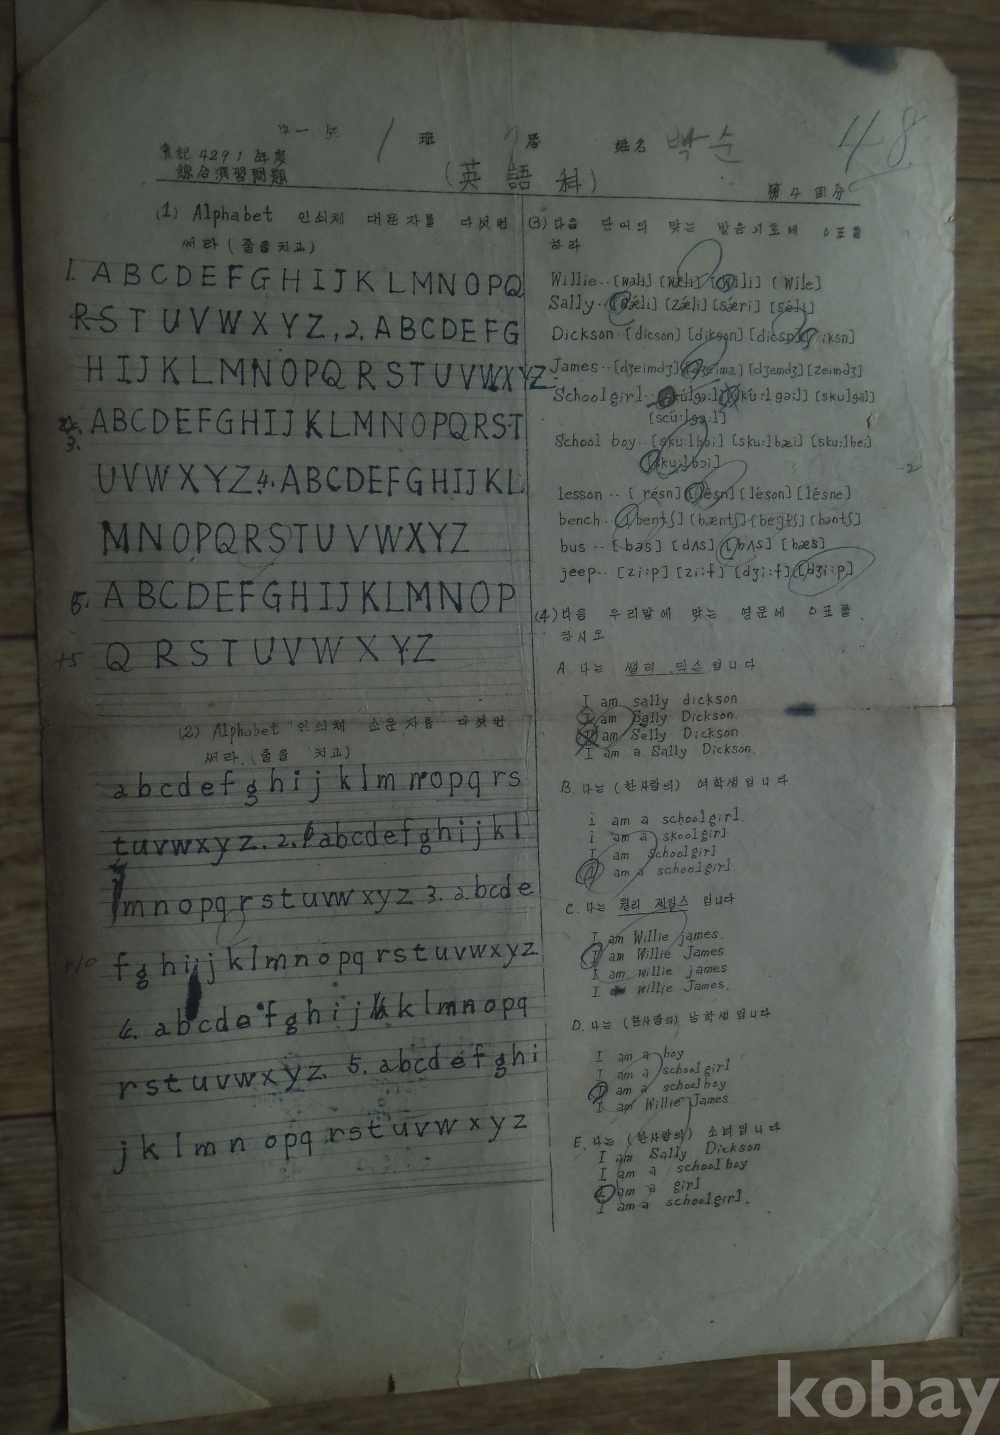 中一
1 班
番
姓名 박순
48
4291 年度
綜合演習問題
(英語科)
第4回分
(1) Alphabet 인쇄체 대문자를 다섯번
써라 (줄을 치고)
1. A B C D E F G H I J K L M N O P Q
R S T U V W X Y Z, 2. A B C D E F G
H I J K L M N O P Q R S T U V W X Y Z
3. A B C D E F G H I J K L M N O P Q R S T
U V W X Y Z 4. A B C D E F G H I J K L
M N O P Q R S T U V W X Y Z
5. A B C D E F G H I J K L M N O P
+5 Q R S T U V W X Y Z
(2) Alphabet 인쇄체 소문자를 다섯번
써라. (줄을 치고)
a b c d e f g h i j k l m n o p q r s
t u v w x y z. 2. a b c d e f g h i j k l
m n o p q r s t u v w x y z 3. a b c d e
+10 f g h i j k l m n o p q r s t u v w x y z.
4. a b c d e f g h i j k l m n o p q
r s t u v w x y z. 5. a b c d e f g h i
j k l m n o p q r s t u v w x y z
(3) 다음 단어의 맞는 발음기호에 O표를
하라
Willie.. [wəli] [wæli] [wili] [wile]
Sally.. [sǽli] [zǽli] [sǽri] [séli]
Dickson.. [dicson] [dikson] [dicsn] [diksn]
James.. [dʒeimdʒ] [dʒeimz] [dʒemdʒ] [zeimdʒ]
School girl.. [skúlgə:l] [skú:lgə:l] [skulgal]
[scú:lgə:l]
School boy.. [sku:lbɔi] [sku:lbæi] [sku:lbei]
[sku:lbɔi]
-2
lesson.. [résn] [lésn] [léson] [lésne]
bench.. [bentʃ] [bæntʃ] [begtʃ] [bəntʃ]
bus.. [bəs] [dʌs] [bʌs] [bæs]
jeep.. [zi:p] [zi:f] [dʒi:f] [dʒi:p]
(4) 다음 우리말에 맞는 영문에 O표를
하시오
A. 나는 쌜리 딕슨입니다
I am sally dickson
I am Sally Dickson.
I am Selly Dickson
I am a Sally Dickson.
B. 나는 (한사람의) 여학생입니다
i am a schoolgirl.
i am a skoolgirl
I am schoolgirl
I am a schoolgirl
C. 나는 윌리 제임스 입니다
I am Willie james.
I am Willie James
I am willie james
I willie James.
D. 나는 (한사람의) 남학생입니다
I am a boy
I am a schoolgirl
I am a schoolboy
I am Willie James
E. 나는 (한사람의) 소녀입니다
I am Sally Dickson
I am a schoolboy
I am a girl
I am a schoolgirl.
kobay